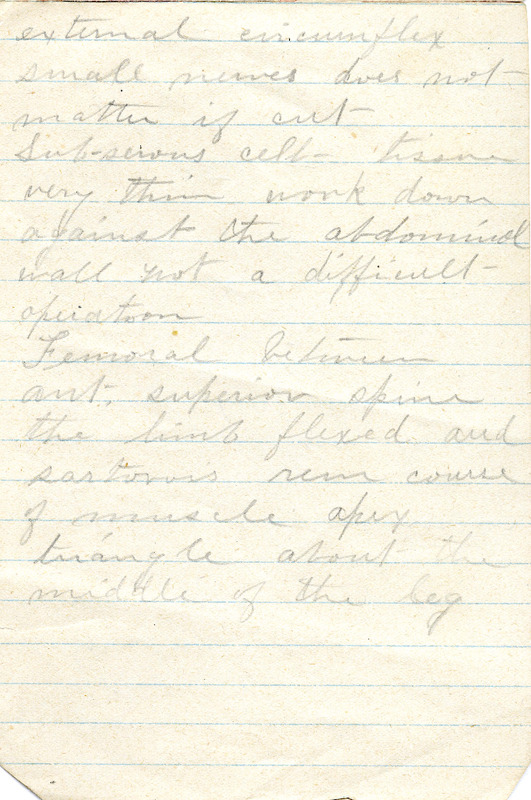 external circumflex
small nerves does not
matter if cut
Sub-serous cell- tissue
very thin work down
against the abdominal
wall not a difficult-
operation
Femoral between
ant. superior spine
the limb flexed and
sartorois rem course
of muscle apex
triangle about the
middle of the leg